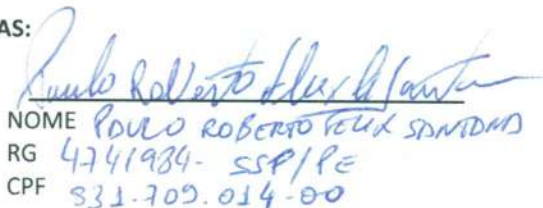 AS:
Paulo Roberto Felix de Santana
NOME PAULO ROBERTO FELIX SANTANA
RG 4741984- SSP/PE
CPF 831.709.014-00